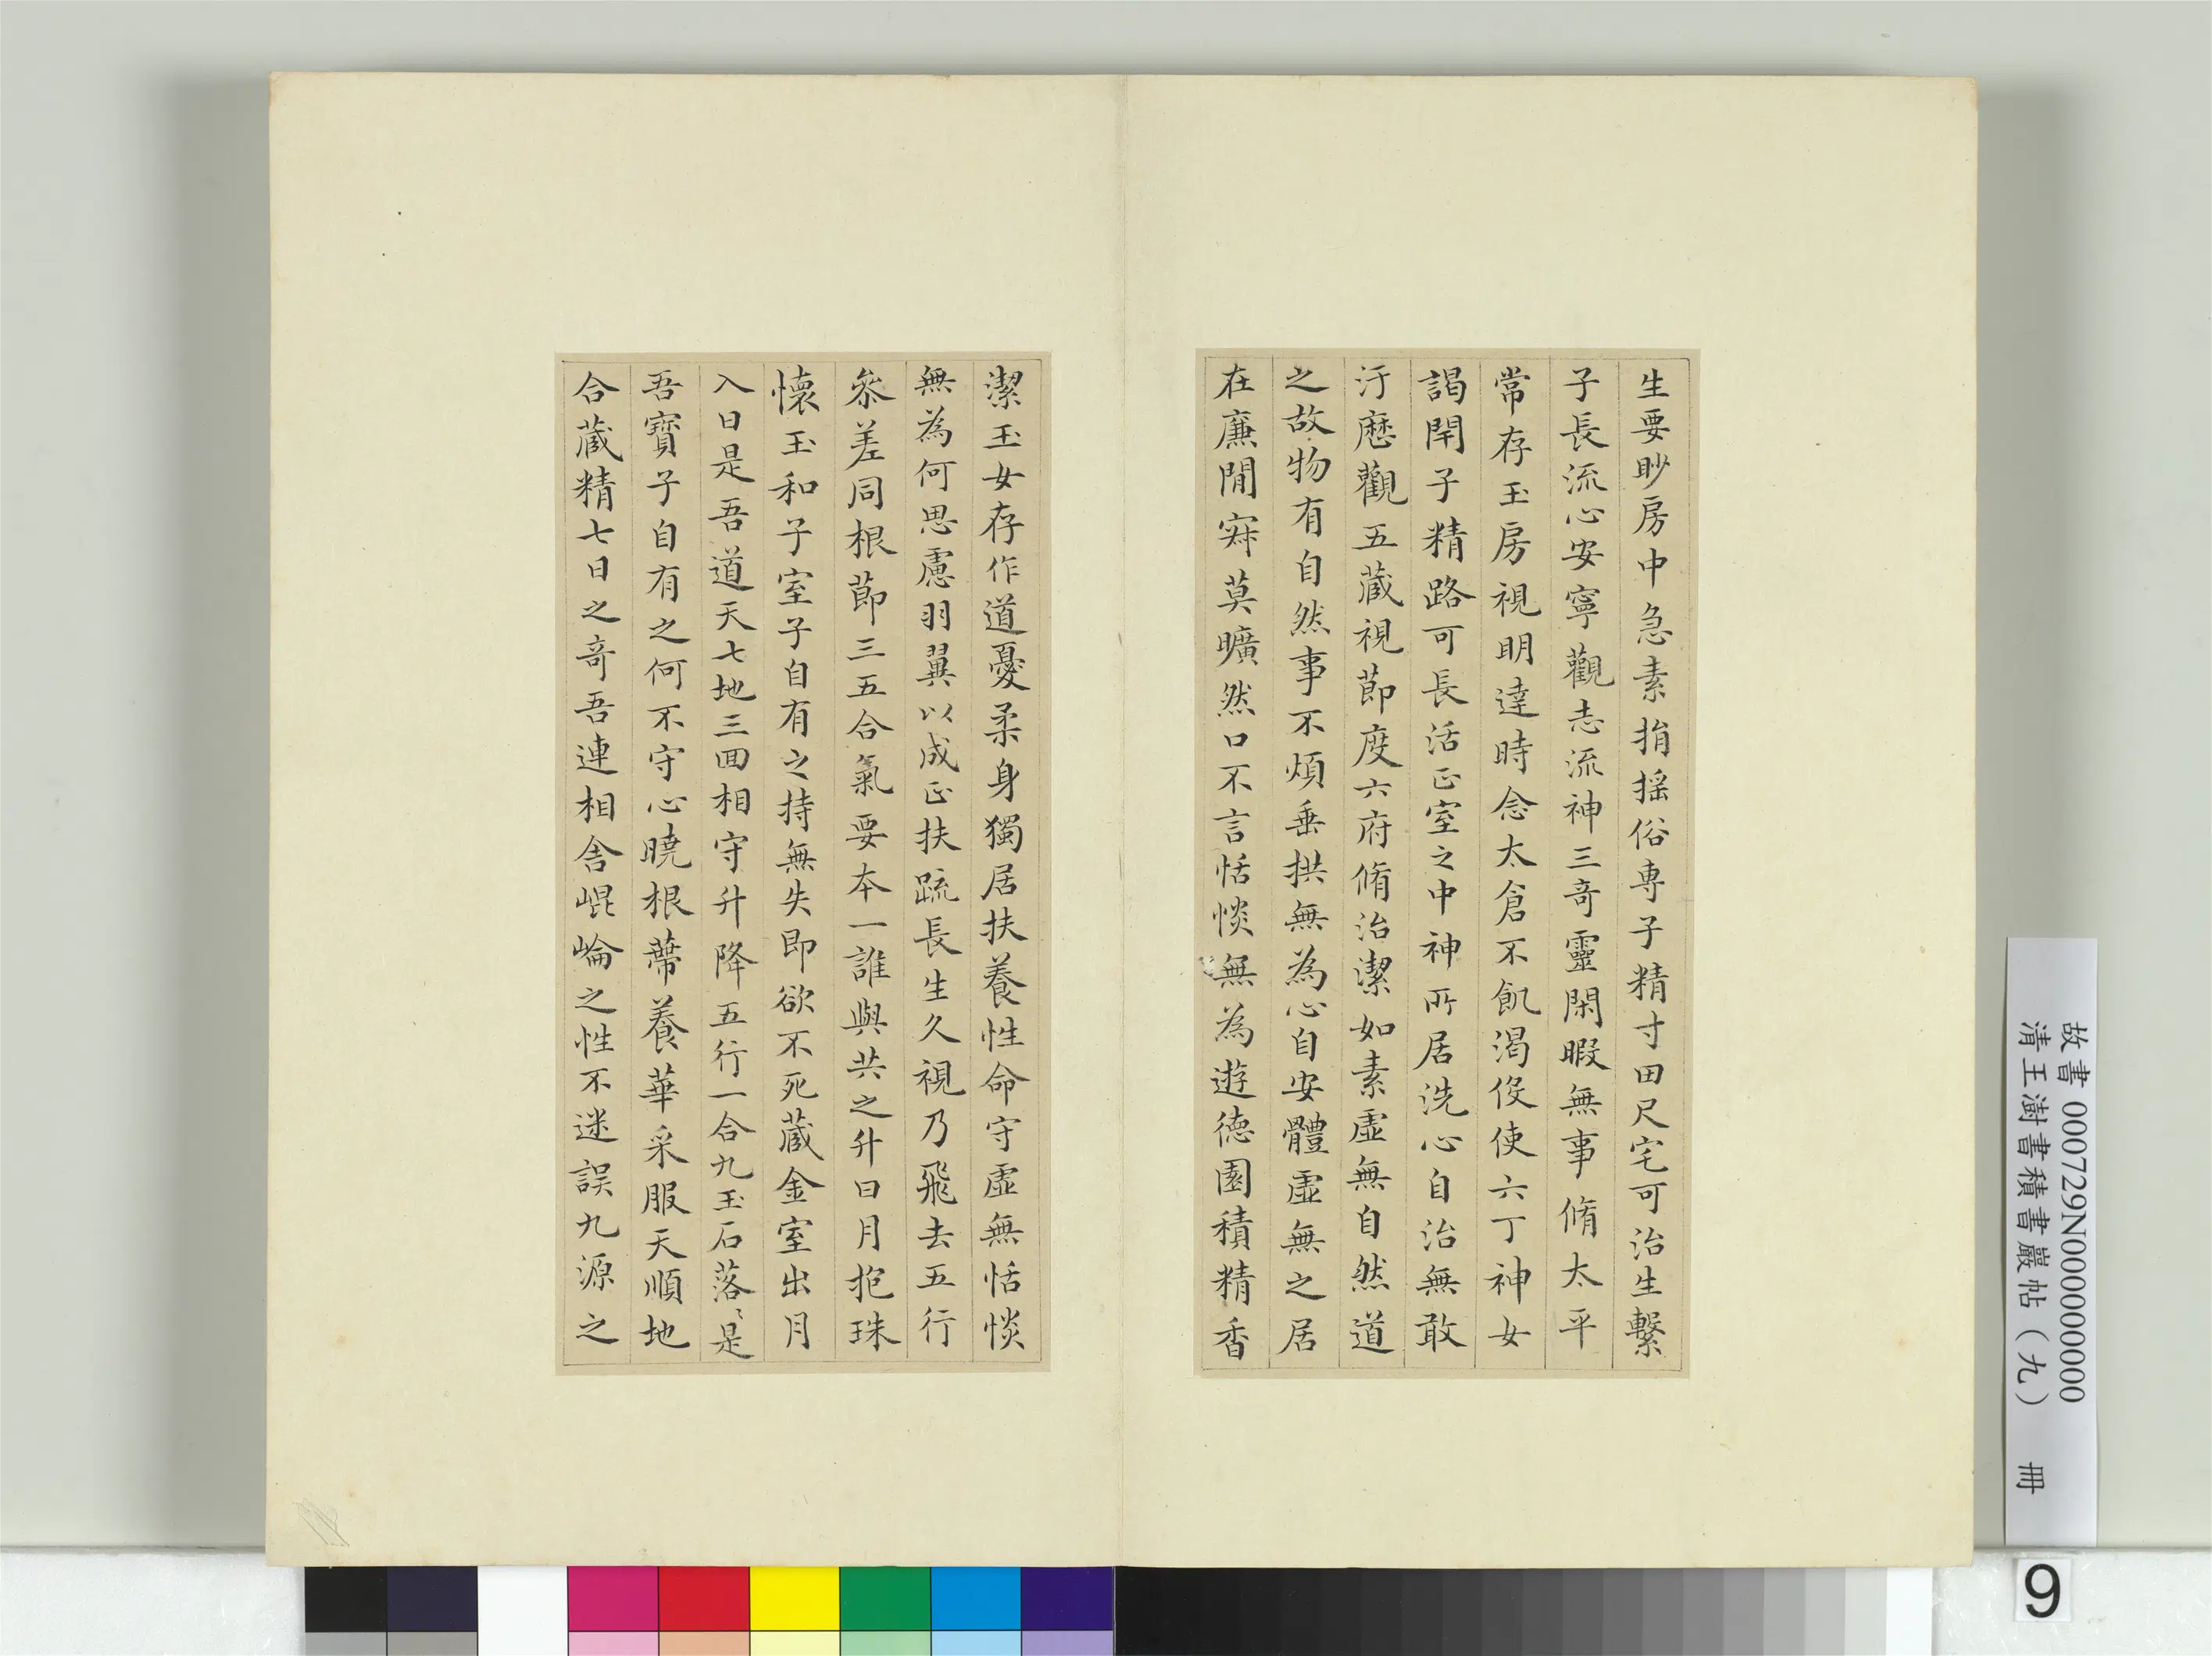 生要眇房中急素捐搖俗專子精寸田尺宅可治生繫
子長流心安寧觀志流神三奇靈閑暇無事脩太平
常存玉房視明達時念太倉不飢渴役使六丁神女
謁閇子精路可長活正室之中神所居洗心自治無敢
汙歷觀五藏視節度六府脩治潔如素虛無自然道
之故物有自然事不煩垂拱無為心自安體虛無之居
在廉間寂莫曠然口不言恬惔無為遊德園積精香
潔玉女存作道憂柔身獨居扶養性命守虛無恬惔
無為何思慮羽翼以成正扶疏長生久視乃飛去五行
參差同根節三五合氣要本一誰與共之升日月抱珠
懷玉和子室子自有之持無失即欲不死藏金室出月
入日是吾道天七地三回相守升降五行一合九玉石落〻是
吾寶子自有之何不守心曉根蔕養華采服天順地
合藏精七日之奇吾連相舍崐崘之性不迷誤九源之
故書 000729N000000000
清王澍書積書巖帖（九） 冊
9